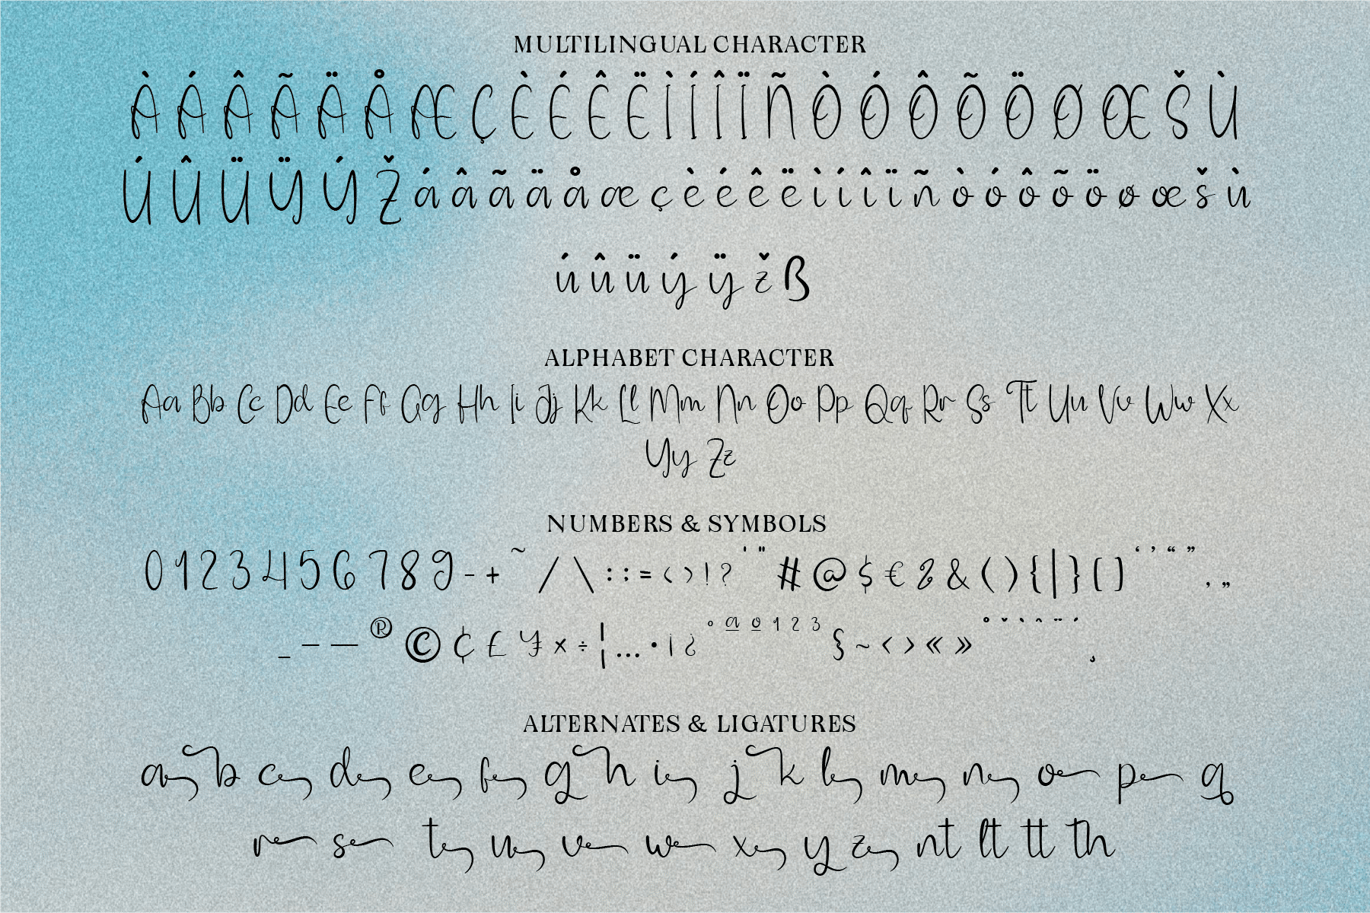 MULTILINGUAL CHARACTER
À Á Â Ã Ä Å Æ Ç È É Ê Ë Ì Í Î Ï Ñ Ò Ó Ô Õ Ö Ø Œ Š Ù
Ú Û Ü Ÿ Ý Ž á â ã ä å æ ç è é ê ë ì í î ï ñ ò ó ô õ ö ø œ š ù
ú û ü ý ÿ ž ß
ALPHABET CHARACTER
Aa Bb Cc Dd Ee Ff Gg Hh Ii Jj Kk Ll Mm Nn Oo Pp Qq Rr Ss Tt Uu Vv Ww Xx
Yy Zz
NUMBERS & SYMBOLS
0 1 2 3 4 5 6 7 8 9 - + ~ / \ : : = < > ! ? ' " # @ $ € & ( ) { | } [ ] ‘ ’ “ ” , „
_ – — ® © ¢ £ ¥ × ÷ ¦ … • ¡ ¿ ° ª º ¹ ² ³ § ~ ‹ › « » ˚ ˇ ` ˆ ¨ ´ ¸
ALTERNATES & LIGATURES
a b c d e f g h i j k l m n o p q
r s t u v w x y z nt lt tt th